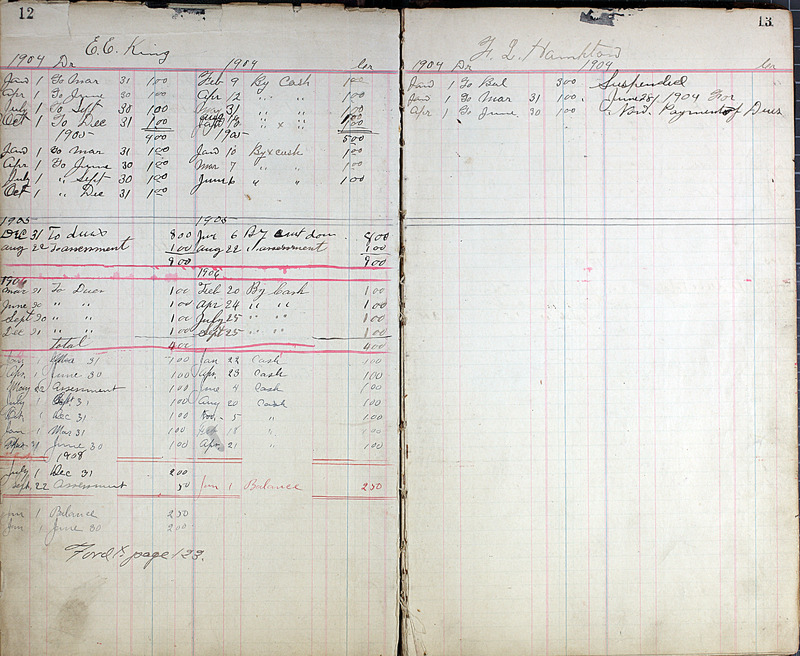 12
E.E. King
1904 Dr 1904 Cr
Jan 1 To Mar 31 1 00 Feb 9 By Cash 1 00
Apr 1 To June 30 1 00 Apr 12 " " 1 00
July 1 To Sept 30 1 00 May 31 " " 1 00
Oct 1 To Dec 31 1 00 " x " 1 00
1905 4 00 1905 5 00
Jan 1 To Mar 31 1 00 Jan 10 By x cash 1 00
Apr 1 To June 30 1 00 Mar 7 " " 1 00
July 1 " Sept 30 1 00 June 6 " " 1 00
Oct 1 " Dec 31 1 00
1905 1905
Dec 31 To dues 8 00 Jan 6 By amt down 8 00
Aug 22 To assessment 1 00 Aug 22 " assessment 1 00
9 00 9 00
1906 1906
Mar 31 To Dues 1 00 Feb 20 By Cash 1 00
June 30 " " 1 00 Apr 24 " " 1 00
Sept 30 " " 1 00 July 25 " " 1 00
Dec 31 " " 1 00 Sept 25 " " 1 00
Total 4 00 4 00
Jan 1 Mar 31 1 00 Jan 22 Cash 1 00
Apr. 1 June 30 1 00 Apr. 23 Cash 1 00
May 22 Assessment 1 00 June 4 Cash 1 00
July 1 Sept 31 1 00 Aug 20 Cash 1 00
Oct. 1 Dec 31 1 00 Nov. 5 " 1 00
Jan 1 Mar 31 1 00 18 "
Mar. 31 June 30 1 00 Apr. 21 " 1 00
1908
July 1 Dec 31 2 00
Sept. 22 Assessment 50 Jan 1 Balance 2 50
Jan 1 Balance 2 50
Jan 1 June 30 2 00
Ford to page 123.
13
F. L. Hampton
1904 Dr 1904 Cr
Jan 1 To Bal 3 00 Suspended
Jan 1 To Mar 31 1 00 June 28/ 1904 For
Apr 1 To June 30 1 00 Payment of Dues